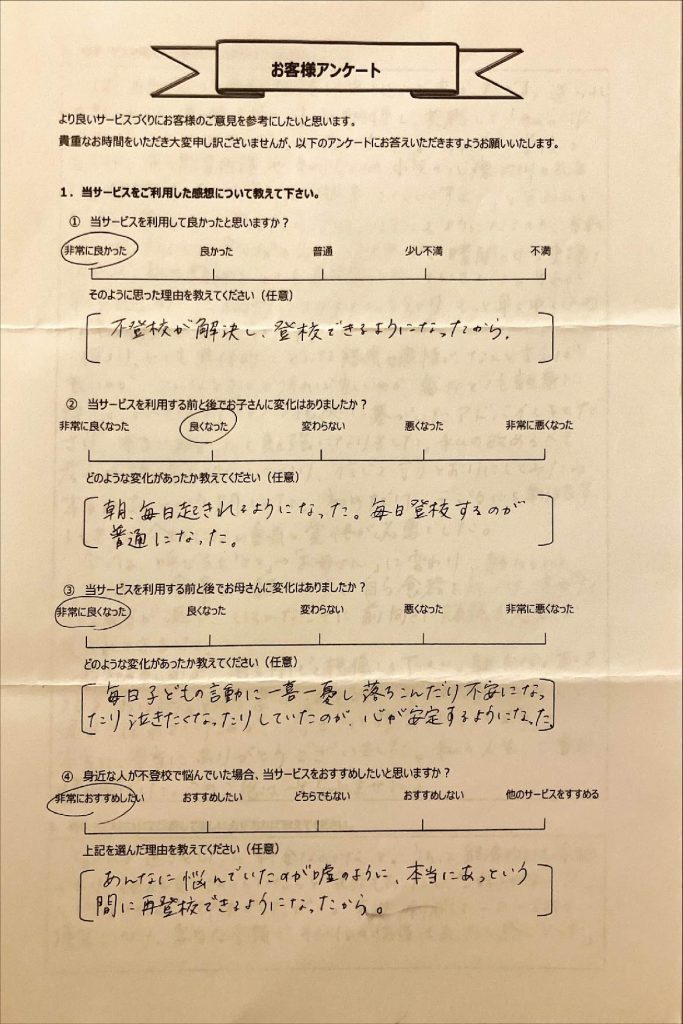 お客様アンケート
より良いサービスづくりにお客様のご意見を参考にしたいと思います。
貴重なお時間をいただき大変申し訳ございませんが、以下のアンケートにお答えいただきますようお願いいたします。
1．当サービスをご利用した感想について教えて下さい。
① 当サービスを利用して良かったと思いますか？
非常に良かった 良かった 普通 少し不満 不満
そのように思った理由を教えてください（任意）
不登校が解決し、登校できるようになったから。
② 当サービスを利用する前と後でお子さんに変化はありましたか？
非常に良くなった 良くなった 変わらない 悪くなった 非常に悪くなった
どのような変化があったか教えてください（任意）
朝、毎日起きれるようになった。毎日登校するのが
普通になった。
③ 当サービスを利用する前と後でお母さんに変化はありましたか？
非常に良くなった 良くなった 変わらない 悪くなった 非常に悪くなった
どのような変化があったか教えてください（任意）
毎日子どもの言動に一喜一憂し落ちこんだり不安になっ
たり泣きたくなったりしていたのが、心が安定するようになった。
④ 身近な人が不登校で悩んでいた場合、当サービスをおすすめしたいと思いますか？
非常におすすめしたい おすすめしたい どちらでもない おすすめしない 他のサービスをすすめる
上記を選んだ理由を教えてください（任意）
あんなに悩んでいたのが嘘のように、本当にあっという
間に再登校できるようになったから。